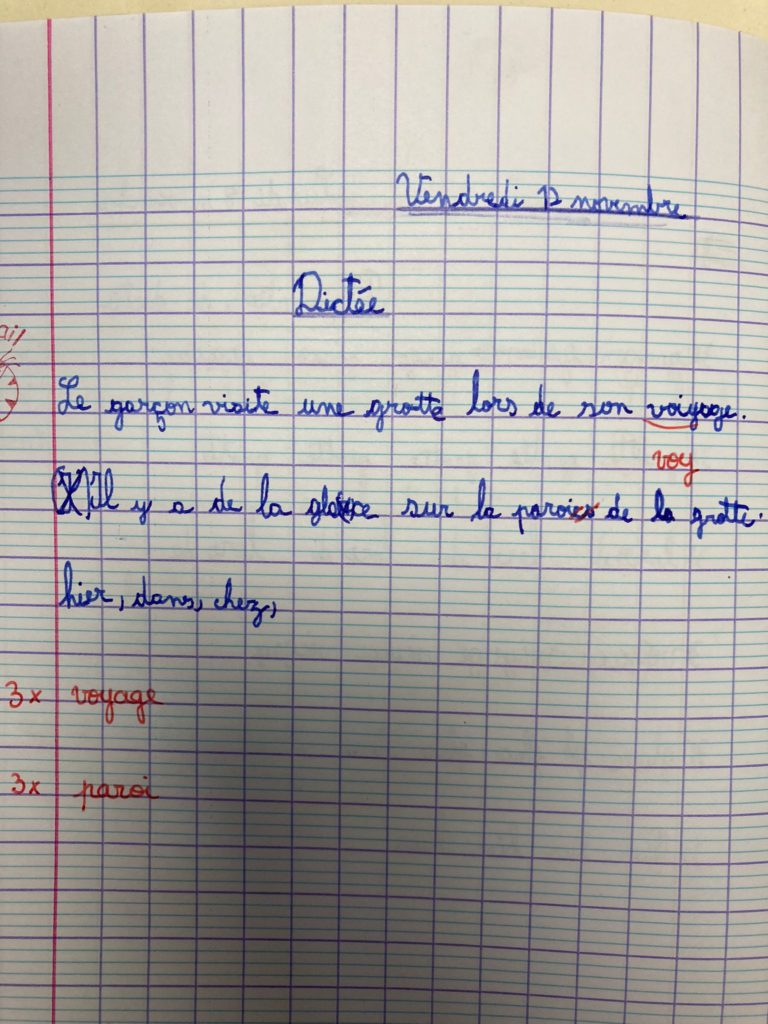 Vendredi 12 novembre
Dictée
ail
Le garçon visite une grotte lors de son voiyage.
voy
Il y a de la glace sur la parois de la grotte.
hier, dans, chez,
3x voyage
3x paroi